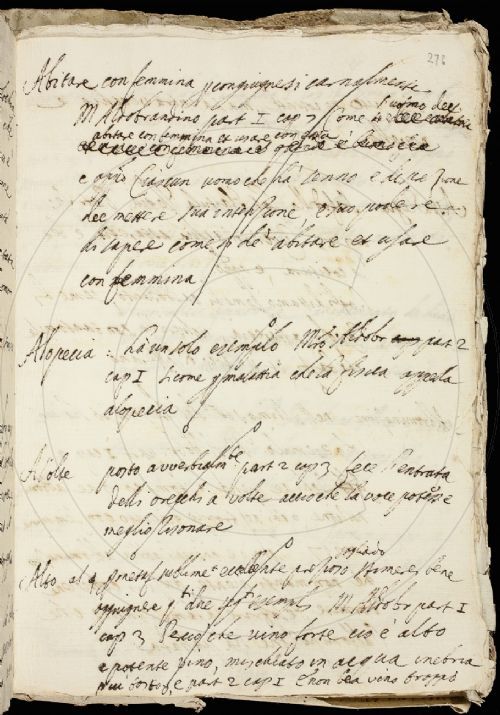 276
Abitare con femmina p congiugnersi carnalmente
M Aldobrandino part I cap 7 Come l'uomo dee
abitare con femmina et usare con essa
e appo Ciascun uomo che ha senno e
dee mettere sua intensione, e suo podere
di sapere come si de abitare et usare
con femmina
Alopecia : Ha un solo esempio M Aldobr part 2
cap I sicome p malattia che la fisica appella
alopecia
A Volte posto avverbialmte part 2 cap 3 fece l'entrata
delli orecchi a volte accioche la voce potesse
meglio risonare
Alto
sublime
oppignere qti due esempli, M Aldobr part I
cap 3 Percioche vino forte cio è alto
e potente vino, mischiato in acqua inebria
e part 2 cap I e non bea vino troppo